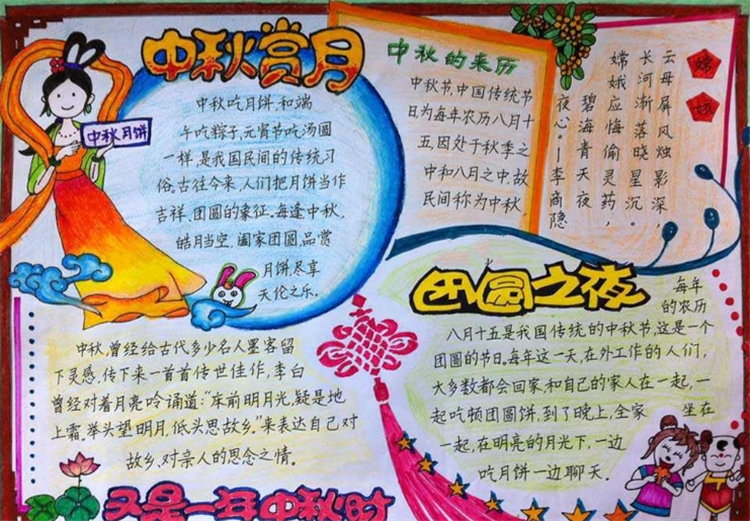 中秋赏月
中秋月饼
中秋吃月饼,和端
午吃粽子,元宵节吃汤圆
一样,是我国民间的传统习
俗.古往今来,人们把月饼当作
吉祥、团圆的象征.每逢中秋,
皓月当空,阖家团圆,品赏
月饼,尽享
天伦之乐。
中秋的来历
中秋节,中国传统节
日为每年农历八月十
五,因处于秋季之
中和八月之中,故
民间称为中秋。
嫦娥
云母屏风烛影深,
长河渐落晓星沉。
嫦娥应悔偷灵药,
碧海青天夜
夜心。—李商隐
中秋,曾经给古代多少名人墨客留
下灵感,传下来一首首传世佳作,李白
曾经对着月亮呤诵道:“床前明月光,疑是地
上霜,举头望明月,低头思故乡。”来表达自己对
故乡,对亲人的思念之情。
团圆之夜
每年
的农历
八月十五是我国传统的中秋节,这是一个
团圆的节日,每年这一天,在外工作的人们,
大多数都会回家,和自己的家人在一起,一
起吃顿团圆饼,到了晚上,全家坐在
一起,在明亮的月光下,一边
吃月饼一边聊天。
又是一年中秋时